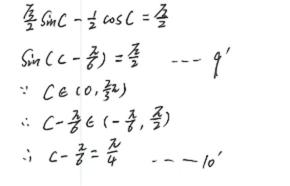 √3/2 sinC - 1/2 cosC = √2/2
sin(C - π/6) = √2/2 --- 9'
∵ C∈(0, 2/3π)
∴ C-π/6∈(-π/6, π/2)
∴ C-π/6=π/4 ---10'